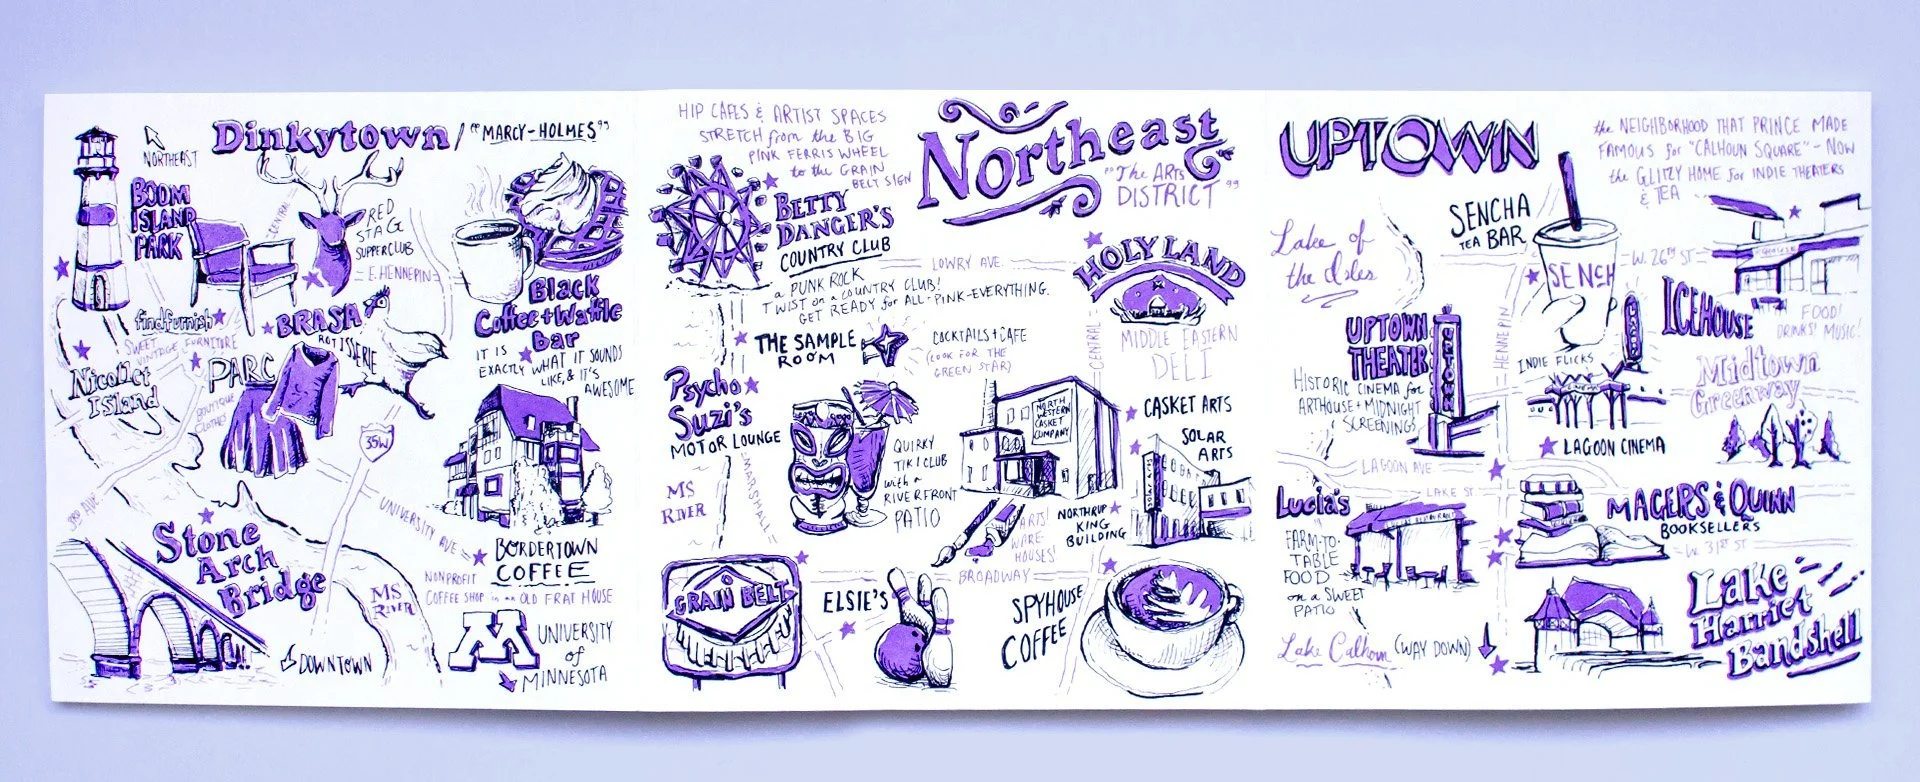 Dinkytown / "MARCY-HOLMES"
NORTHEAST
BOOM
ISLAND
PARK
CENTRAL
RED
STAG
SUPPERCLUB
E. HENNEPIN
findfurnish
SWEET
VINTAGE FURNITURE
BRASA
ROTISSERIE
Black
Coffee + Waffle
Bar
IT IS
EXACTLY WHAT IT SOUNDS
LIKE, & IT'S
AWESOME
Nicollet
Island
PARC
BOUTIQUE
CLOTHES
35W
3RD AVE
UNIVERSITY AVE
Stone
Arch
Bridge
BORDERTOWN
COFFEE
NONPROFIT
COFFEE SHOP in an OLD FRAT HOUSE
MS
RIVER
DOWNTOWN
M
UNIVERSITY
of
MINNESOTA
HIP CAFES & ARTIST SPACES
STRETCH from the BIG
PINK FERRIS WHEEL
to the GRAIN
BELT SIGN
Northeast
"The ARTS
DISTRICT"
BETTY
DANGER'S
COUNTRY CLUB
a PUNK ROCK
TWIST on a COUNTRY CLUB!
GET READY for ALL-PINK-EVERYTHING.
LOWRY AVE.
HOLY LAND
MIDDLE EASTERN
DELI
THE SAMPLE
ROOM
COCKTAILS + CAFE
(LOOK FOR THE
GREEN STAR)
CENTRAL
Psycho
Suzi's
MOTOR LOUNGE
QUIRKY
TIKI CLUB
with a
RIVERFRONT
PATIO
MS
RIVER
MARSHALL
NORTH
WESTERN
CASKET
COMPANY
CASKET ARTS
SOLAR
ARTS
ARTS!
WARE-
HOUSES!
NORTHRUP
KING
BUILDING
GRAIN BELT
ELSIE'S
BROADWAY
SPYHOUSE
COFFEE
UPTOWN
the NEIGHBORHOOD THAT PRINCE MADE
FAMOUS for "CALHOUN SQUARE" - NOW
the GLITZY HOME for INDIE THEATERS
& TEA
Lake of
the Isles
SENCHA
TEA BAR
SENCH
W. 26TH ST
ICEHOUSE
FOOD!
DRINKS! MUSIC!
UPTOWN
THEATER
UPTOWN
HISTORIC CINEMA for
ARTHOUSE + MIDNIGHT
SCREENINGS
HENNEPIN
INDIE FLICKS
LAGOON CINEMA
Midtown
Greenway
LAGOON AVE
LAKE ST
Lucia's
FARM-TO-
TABLE
FOOD
on a SWEET
PATIO
MAGERS & QUINN
BOOKSELLERS
W. 31ST ST
Lake Calhoun (WAY DOWN)
Lake
Harriet
Bandshell